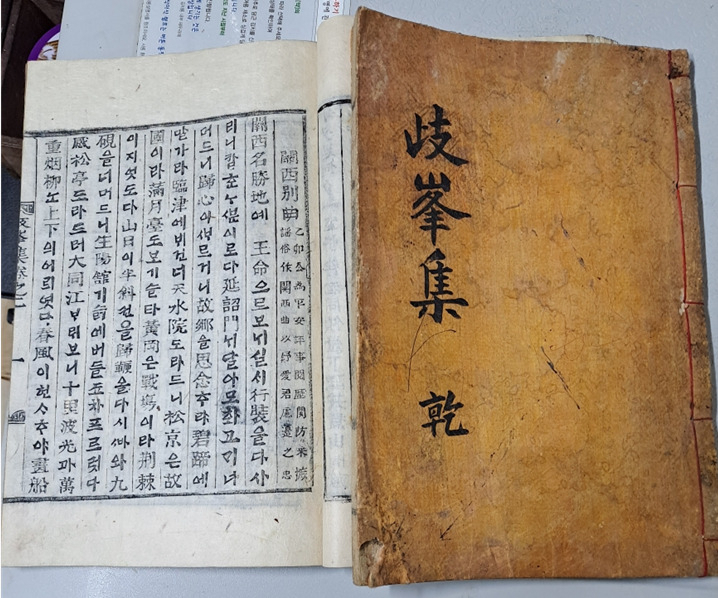 關西別曲
乙卯公爲平安評事閱歷關防采
謠俗作關西曲以紓愛君慮邊之忠
關西名勝地예 王命으로보ᄂᆡ실ᄉᆡ行裝을다사
리니칼ᄒᆞᆫᄂᆞᄲᅮᆫ이로다延詔門ᄂᆡ달아모화고ᄀᆡ너
머드니歸心이ᄲᆞᄅᆞ거니故鄕을思念ᄒᆞ랴碧蹄에
말가라臨津에ᄇᆡ건너天水院도라드니松京은故
國이라滿月臺도보기슬타黃岡은戰場이라荊棘
이지엿도다山日이半斜컨을歸鞭을다시ᄲᅡ와九
硯을너머드니生陽館기슭에버들죠차프르럿다
感松亭도라드러大同江ᄇᆞ라보니十里波光과萬
重烟柳ᄂᆞᆫ上下의어릐엿다春風이헌ᄉᆞᄒᆞ야畫船
岐峯集卷之二
一
岐峯集
乾